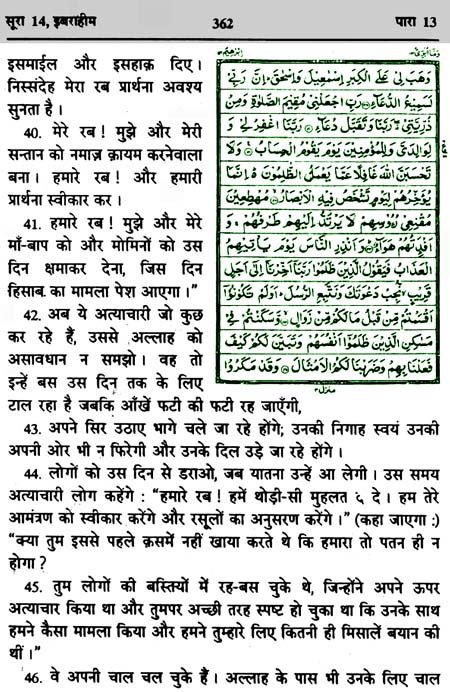 सूरा 14, इबराहीम 362 पारा 13
इसमाईल और इसहाक़ दिए।
निस्संदेह मेरा रब प्रार्थना अवश्य
सुनता है।
40. मेरे रब! मुझे और मेरी
सन्तान को नमाज़ क़ायम करनेवाला
बना। हमारे रब! और हमारी
प्रार्थना स्वीकार कर।
41. हमारे रब! मुझे और मेरे
माँ-बाप को और मोमिनों को उस
दिन क्षमाकर देना, जिस दिन
हिसाब का मामला पेश आएगा।”
42. अब ये अत्याचारी जो कुछ
कर रहे हैं, उससे अल्लाह को
असावधान न समझो। वह तो
इन्हें बस उस दिन तक के लिए
وَهَبَ لِيْ عَلَى الْكِبَرِ اِسْمٰعِيْلَ وَاِسْحٰقَ اِنَّ رَبِّيْ
لَسَمِيْعُ الدُّعَآءِ رَبِّ اجْعَلْنِيْ مُقِيْمَ الصَّلٰوةِ وَمِنْ
ذُرِّيَّتِيْ رَبَّنَا وَتَقَبَّلْ دُعَآءِ رَبَّنَا اغْفِرْ لِيْ وَ
لِوَالِدَيَّ وَلِلْمُؤْمِنِيْنَ يَوْمَ يَقُوْمُ الْحِسَابُ وَلَا
تَحْسَبَنَّ اللّٰهَ غَافِلًا عَمَّا يَعْمَلُ الظّٰلِمُوْنَ اِنَّمَا
يُؤَخِّرُهُمْ لِيَوْمٍ تَشْخَصُ فِيْهِ الْاَبْصَارُ مُهْطِعِيْنَ
مُقْنِعِيْ رُءُوْسِهِمْ لَا يَرْتَدُّ اِلَيْهِمْ طَرْفُهُمْ وَ
اَفْئِدَتُهُمْ هَوَآءٌ وَاَنْذِرِ النَّاسَ يَوْمَ يَاْتِيْهِمُ
الْعَذَابُ فَيَقُوْلُ الَّذِيْنَ ظَلَمُوْا رَبَّنَا اَخِّرْنَا اِلٰى اَجَلٍ
قَرِيْبٍ نُّجِبْ دَعْوَتَكَ وَنَتَّبِعِ الرُّسُلَ اَوَلَمْ تَكُوْنُوْا
اَقْسَمْتُمْ مِّنْ قَبْلُ مَا لَكُمْ مِّنْ زَوَالٍ وَّسَكَنْتُمْ فِيْ
مَسٰكِنِ الَّذِيْنَ ظَلَمُوْا اَنْفُسَهُمْ وَتَبَيَّنَ لَكُمْ كَيْفَ
فَعَلْنَا بِهِمْ وَضَرَبْنَا لَكُمُ الْاَمْثَالَ وَقَدْ مَكَرُوْا
टाल रहा है जबकि आँखें फटी की फटी रह जाएँगी,
43. अपने सिर उठाए भागे चले जा रहे होंगे; उनकी निगाह स्वयं उनकी
अपनी ओर भी न फिरेगी और उनके दिल उड़े जा रहे होंगे।
44. लोगों को उस दिन से डराओ, जब यातना उन्हें आ लेगी। उस समय
अत्याचारी लोग कहेंगे : “हमारे रब! हमें थोड़ी-सी मुहलत दे। हम तेरे
आमंत्रण को स्वीकार करेंगे और रसूलों का अनुसरण करेंगे।” (कहा जाएगा :)
“क्या तुम इससे पहले क़समें नहीं खाया करते थे कि हमारा तो पतन ही न
होगा?
45. तुम लोगों की बस्तियों में रह-बस चुके थे, जिन्होंने अपने ऊपर
अत्याचार किया था और तुमपर अच्छी तरह स्पष्ट हो चुका था कि उनके साथ
हमने कैसा मामला किया और हमने तुम्हारे लिए कितनी ही मिसालें बयान की
थीं।”
46. वे अपनी चाल चल चुके हैं। अल्लाह के पास भी उनके लिए चाल